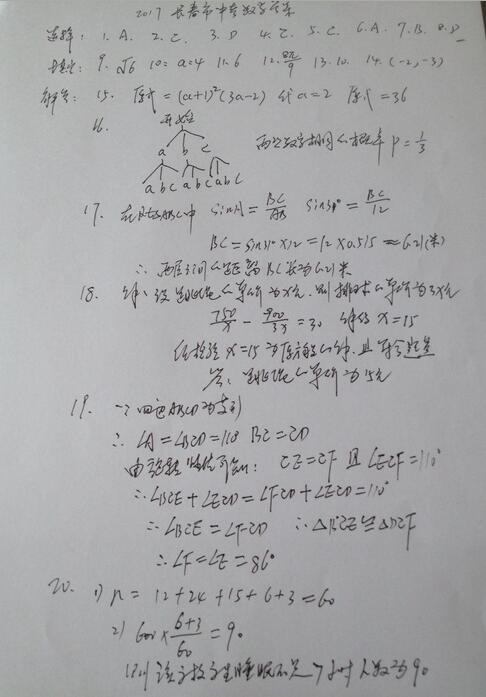 2017 长春市中考数学答案
选择: 1. A. 2. C. 3. D 4. C. 5. C. 6. A. 7. B. 8. D
填空: 9. √6 10= a=4 11. 6 12. 8π/9 13. 10. 14. (-2,-3)
解答: 15. 原式=(a+1)²(3a-2) 代a=2 原式=36
16. 开始
a b c
a b c a b c a b c
两次数字相同的概率 P=1/3
17. 在Rt△ABC中 sinA=BC/AB sin31°=BC/12
BC=sin31°×12=12×0.515≈6.21(米)
∴ 两层之间的距离BC长为6.21米
18. 解: 设跳绳的单价为x元. 则排球的单价为3x元
750/x - 900/3x =30 解得 x=15
经检验x=15为原方程的解. 且符合题意
答: 跳绳的单价为15元
19. ∵四边形ABCD为菱形
∴ ∠A=∠BCD=110° BC=CD
由旋转性质可知: CE=CF 且∠ECF=110°
∴∠BCE+∠ECD=∠FCD+∠ECD=110°
∴∠BCE=∠FCD ∴△BCE≌△DCF
∴∠F=∠E=86°
20. 1) n=12+24+15+6+3=60
2) 600×(6+3)/60=90
所以该学校学生睡眠不足7小时人数为90